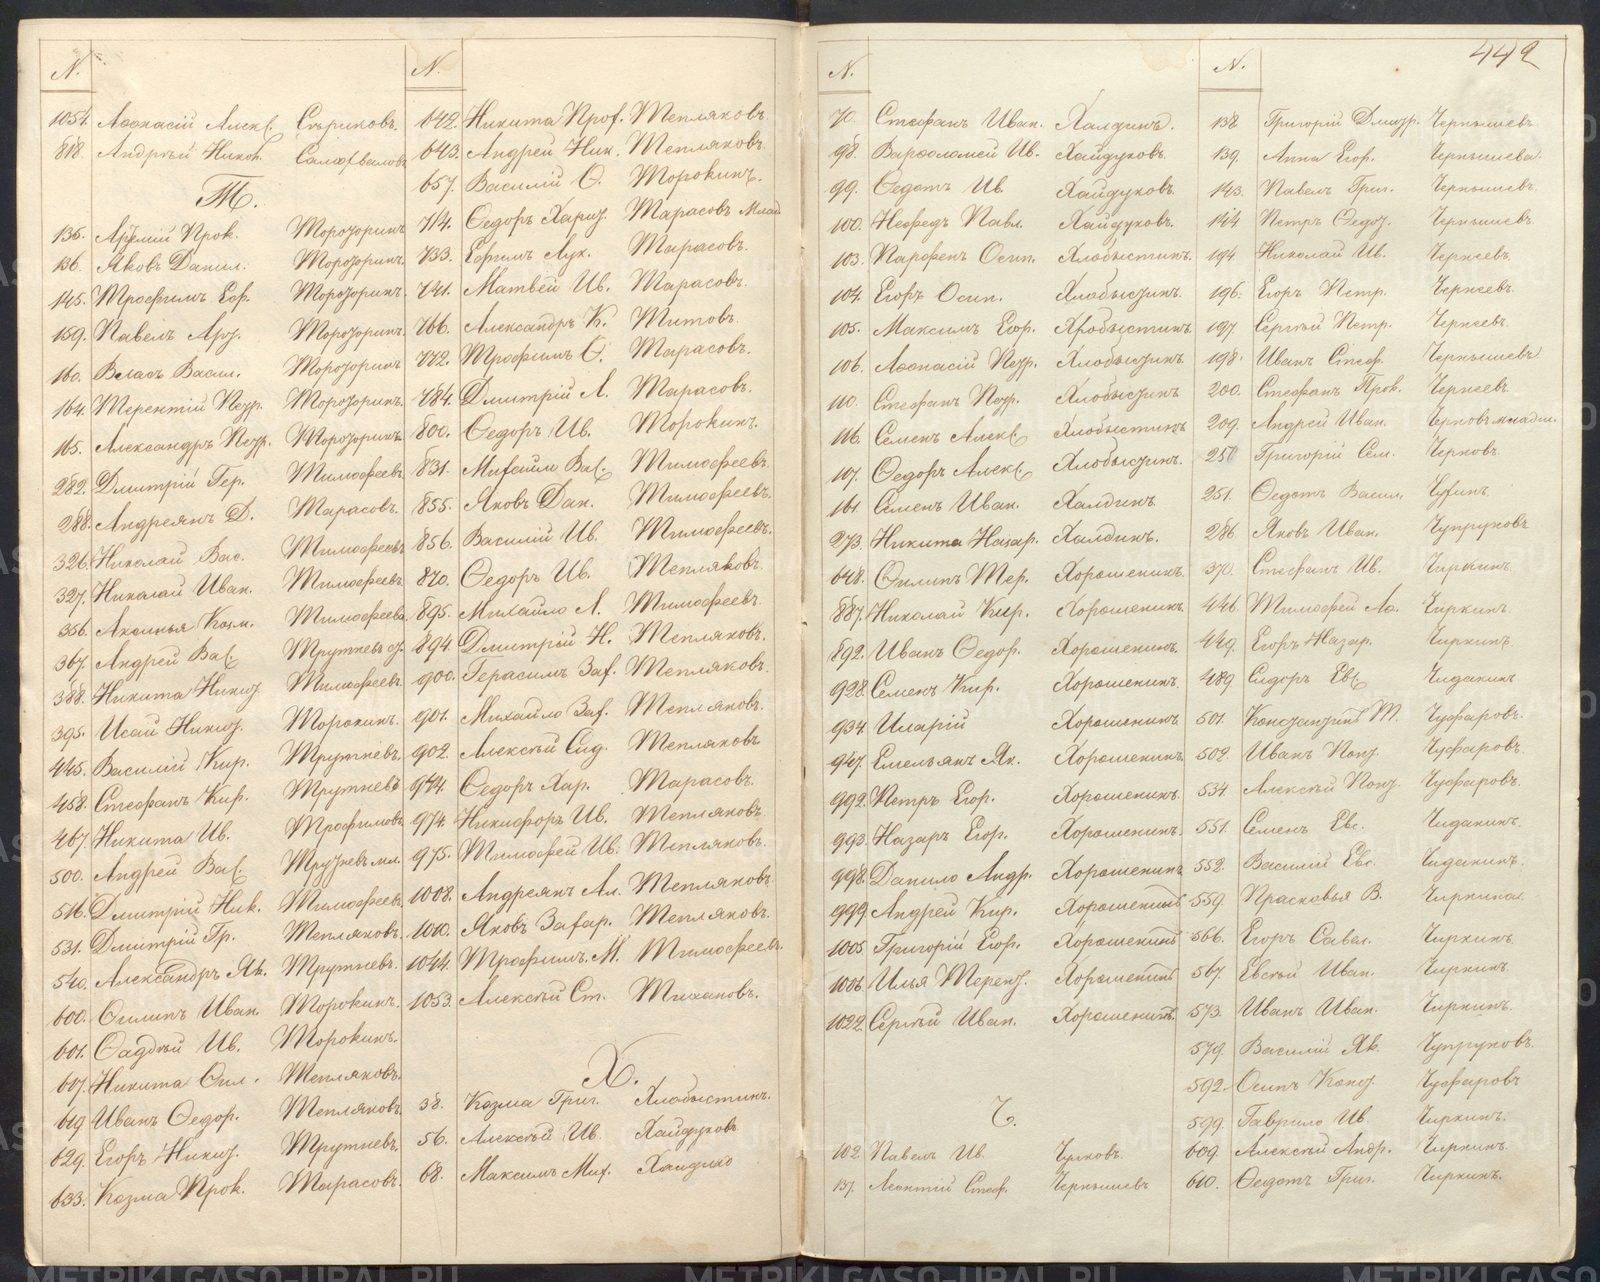 N.
1054. Аѳонасій Алекс. Съриковъ.
818. Андрей Никон. Салохваловъ
Т.
135. Артемій Прок. Торозоринъ
136. Яковъ Данил. Торозоринъ.
145. Трофимъ Еф. Торозоринъ.
159. Павелъ Арт. Торозоринъ.
160. Власъ Васил. Торозоринъ
164. Терентій Петр. Торозоринъ.
165. Александръ Петр. Торозоринъ.
282. Дмитрій Гер. Тимофеевъ
288. Андреянъ Д. Тарасовъ.
326. Николай Вас. Тимофеевъ
327. Николай Иван. Тимофеевъ.
356. Акоинья Козм. Тимофеева
367. Андрей Вас. Трутневъ ст.
388. Никита Никит. Тимофеевъ.
395. Исай Никит. Торокинъ.
445. Василій Кир. Трутневъ.
458. Стефанъ Кир. Трутневъ
467. Никита Ив. Трофимовъ
500. Андрей Вас. Трутневъ мл.
516. Дмитрій Ник. Тимофеевъ
531. Дмитрій Гр. Тепляковъ.
540. Александръ Як. Трутневъ.
600. Филипъ Иван. Торокинъ.
601. Фадѣй Ив. Торокинъ.
607. Никита Фил. Тепляковъ.
619 Иванъ Ѳедор. Тепляковъ.
629. Егоръ Никит. Трутневъ.
633. Козма Прок. Тарасовъ.
N.
642. Никита Прох. Тепляковъ.
643. Андрей Ник. Тепляковъ.
657. Василій Ѳ. Торокинъ.
714. Ѳедоръ Харит. Тарасовъ Млад
733. Ефимъ Лук. Тарасовъ.
741. Матвей Ив. Тарасовъ.
766. Александръ К. Титовъ.
772. Трофимъ Ѳ. Тарасовъ.
784. Дмитрій Л. Тарасовъ.
800. Ѳедоръ Ив. Торокинъ.
831. Михайло Вас. Тимофеевъ.
855. Яковъ Дан. Тимофеевъ.
856. Василій Ив. Тимофеевъ.
870. Ѳедоръ Ив. Тепляковъ.
895. Михайло Л. Тимофеевъ.
894. Дмитрій Н. Тепляковъ.
900. Герасимъ Зах. Тепляковъ.
901. Михайло Зах. Тепляковъ.
902. Алексѣй Сид. Тепляковъ
944. Ѳедоръ Хар. Тарасовъ.
974. Никифоръ Ив. Тепляковъ
975. Тимофей Ив. Тепляковъ.
1008. Андреянъ Ал. Тепляковъ
1010. Яковъ Захар. Тепляковъ.
1044. Трофимъ М. Тимофеевъ.
1053. Алексѣй Ст. Тихановъ.
Х.
38. Козма Григ. Хлобыстинъ.
56. Алексѣй Ив. Хайдуковъ
68. Максимъ Мих. Хайдуко
442
N.
70. Стефанъ Иван. Халдинъ.
98. Варфоломей Ив. Хайдуковъ.
99. Ѳедотъ Ив. Хайдуковъ.
100. Нефедъ Павл. Хайдуковъ.
103. Парфенъ Осип. Хлобыстинъ.
104. Егоръ Осип. Хлобыстинъ.
105. Максимъ Егор. Хлобыстинъ
106. Аѳонасій Петр. Хлобыстинъ.
110. Стефанъ Петр. Хлобыстинъ
116. Семенъ Алекс. Хлобыстинъ
107. Ѳедоръ Алекс. Хлобыстинъ.
161. Семенъ Иван. Халдинъ.
273. Никита Назар. Халдинъ.
648. Филипъ Тер. Хорошенинъ.
887. Николай Кир. Хорошенинъ.
892. Иванъ Ѳедор. Хорошенинъ.
928. Семенъ Кир. Хорошенинъ.
934. Иларій Хорошенинъ
947. Емельянъ Як. Хорошенинъ.
992. Петръ Егор. Хорошенинъ.
993. Назаръ Егор. Хорошенинъ.
998. Данило Андр. Хорошенинъ
999. Андрей Кир. Хорошенинъ
1005. Григорій Егор. Хорошенинъ
1006. Илья Терент. Хорошенинъ
1022. Сергѣй Иван. Хорошенинъ.
Ч.
102. Павелъ Ив. Чулковъ.
137. Леонтій Стеф. Чернышевъ
N.
138 Григорій Дмитр. Чернышевъ
139. Анна Егор. Чернышева.
143. Павелъ Григ. Чернышевъ.
144 Петръ Ѳедот. Чернышевъ
194 Николай Ив. Чернеевъ.
196. Егоръ Петр. Чернеевъ.
197. Сергѣй Петр. Чернеевъ.
198. Иванъ Стеф. Чернышевъ
200. Стефанъ Прок. Чернеевъ
209. Андрей Иван. Черновъ младш.
250 Григорій Сем. Черновъ.
251. Ѳедотъ Васил. Чухинъ.
286 Яковъ Иван. Чупруковъ
370. Стефанъ Ив. Чиркинъ.
446. Тимофей Аѳ. Чиркинъ
449. Егоръ Назар. Чиркинъ.
489 Сидоръ Евс. Чиданинъ
501. Константинъ Т. Чуфаровъ.
502. Иванъ Понт. Чуфаровъ.
534. Алексѣй Понт. Чуфаровъ.
551. Семенъ Евс. Чиданинъ.
552. Василій Евс. Чиданинъ.
559. Прасковья В. Чиркина.
566. Егоръ Савел. Чиркинъ.
567. Евсѣй Иван. Чиркинъ.
573. Иванъ Иван. Чиркинъ.
579. Василій Як. Чупруковъ.
592. Осипъ Конст. Чуфаровъ
599. Гаврило Ив. Чиркинъ.
609. Алексѣй Андр. Чиркинъ.
610. Ѳедотъ Григ. Чиркинъ.
METRIKI.GASO-URAL.RU